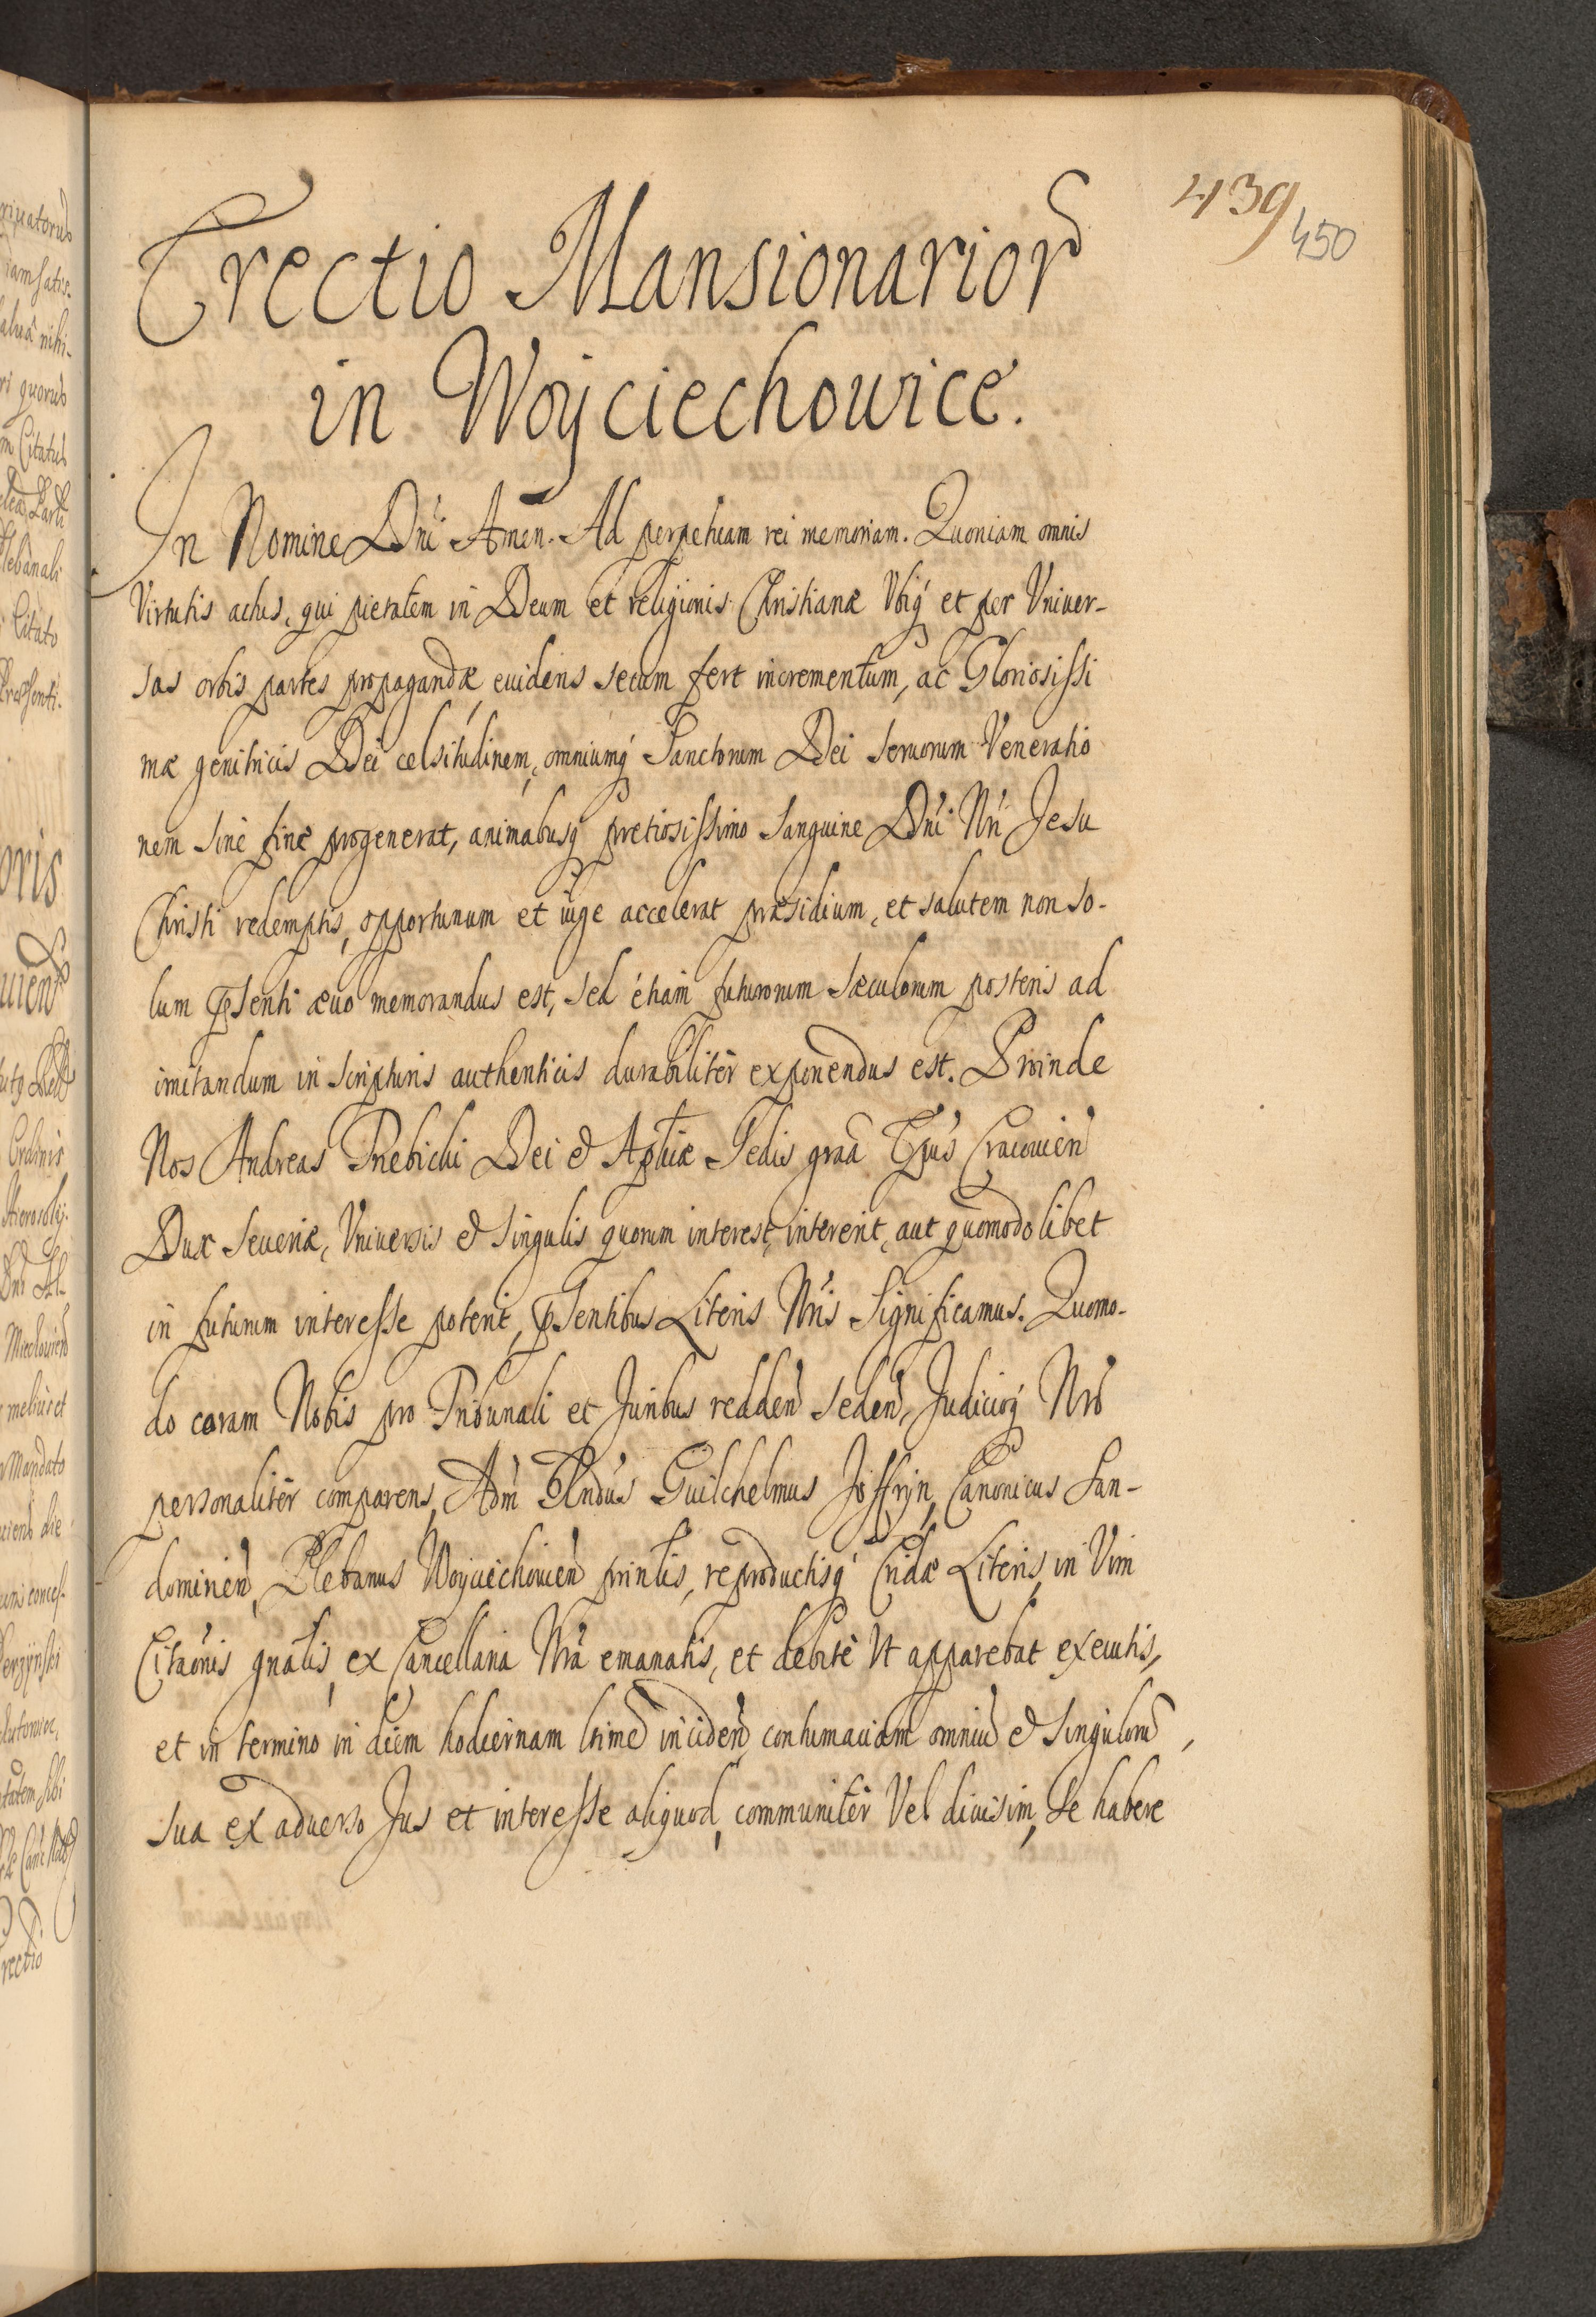 439
450
Erectio Mansionarior
in Woyciechowice.
In Nomine Dni Amen. Ad perpetuam rei memoriam. Quoniam omnis
Virtutis actus, qui pietatem in Deum et religionis Christianæ Vbiq́ et per Vniuer-
sas orbis partes propagandæ, euidens secum fert incrementum, ac Gloriosissi
mæ genitricis Dei celsitudinem, omniumq́ Sanctorum Dei seruorum Veneratio
nem sine fine progenerat, animabusq́ pretiosissimo Sanguine Dni Nri Jesu
Christi redemptis, opportunum et iuge accelerat præsidium, et salutem non so-
lum pSenti æuo memorandus est, sed etiam futurorum sæculorum posteris ad
imitandum in scripturis authenticis durabiliter exponendus est. Proinde
Nos Andreas Trebicki Dei & Aplicæ Sedis graã Epus Cracouien
Dux Seueriæ, Vniuersis & Singulis quorum interest, intererit, aut quomodolibet
in futurum interesse poterit, pSentibus Literis Nris Significamus. Quomo-
do coram Nobis pro Tribunali et Juribus redden seden, Judicioq́ Nro
personaliter comparens, Adm Rndus Guilchelmus Joffryn, Canonicus San-
domirien, Plebanus Woyciechouien printis, reproductisq́ Cridæ Literis, in Vim
Citaonis gnalis, ex Cancellaria Nra emanatis, et debite Vt apparebat executis,
et in termino in diem hodiernam inciden, contumaciam omniu & Singuloru,
sua ex aduerso Jus et interesse aliquod, communiter Vel diuisim, Se habere